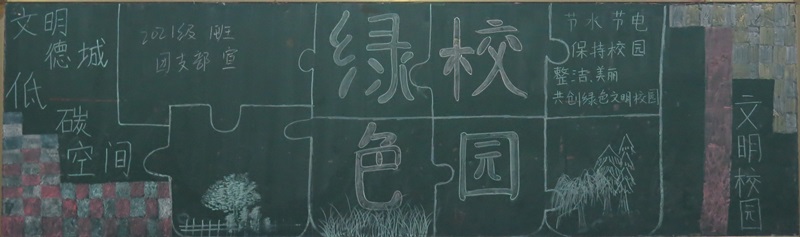 文明
德城
低
碳
空间
2021级 1班
团支部 宣
绿校
色园
节水节电
保持校园
整洁、美丽
共创绿色文明校园
文明校园